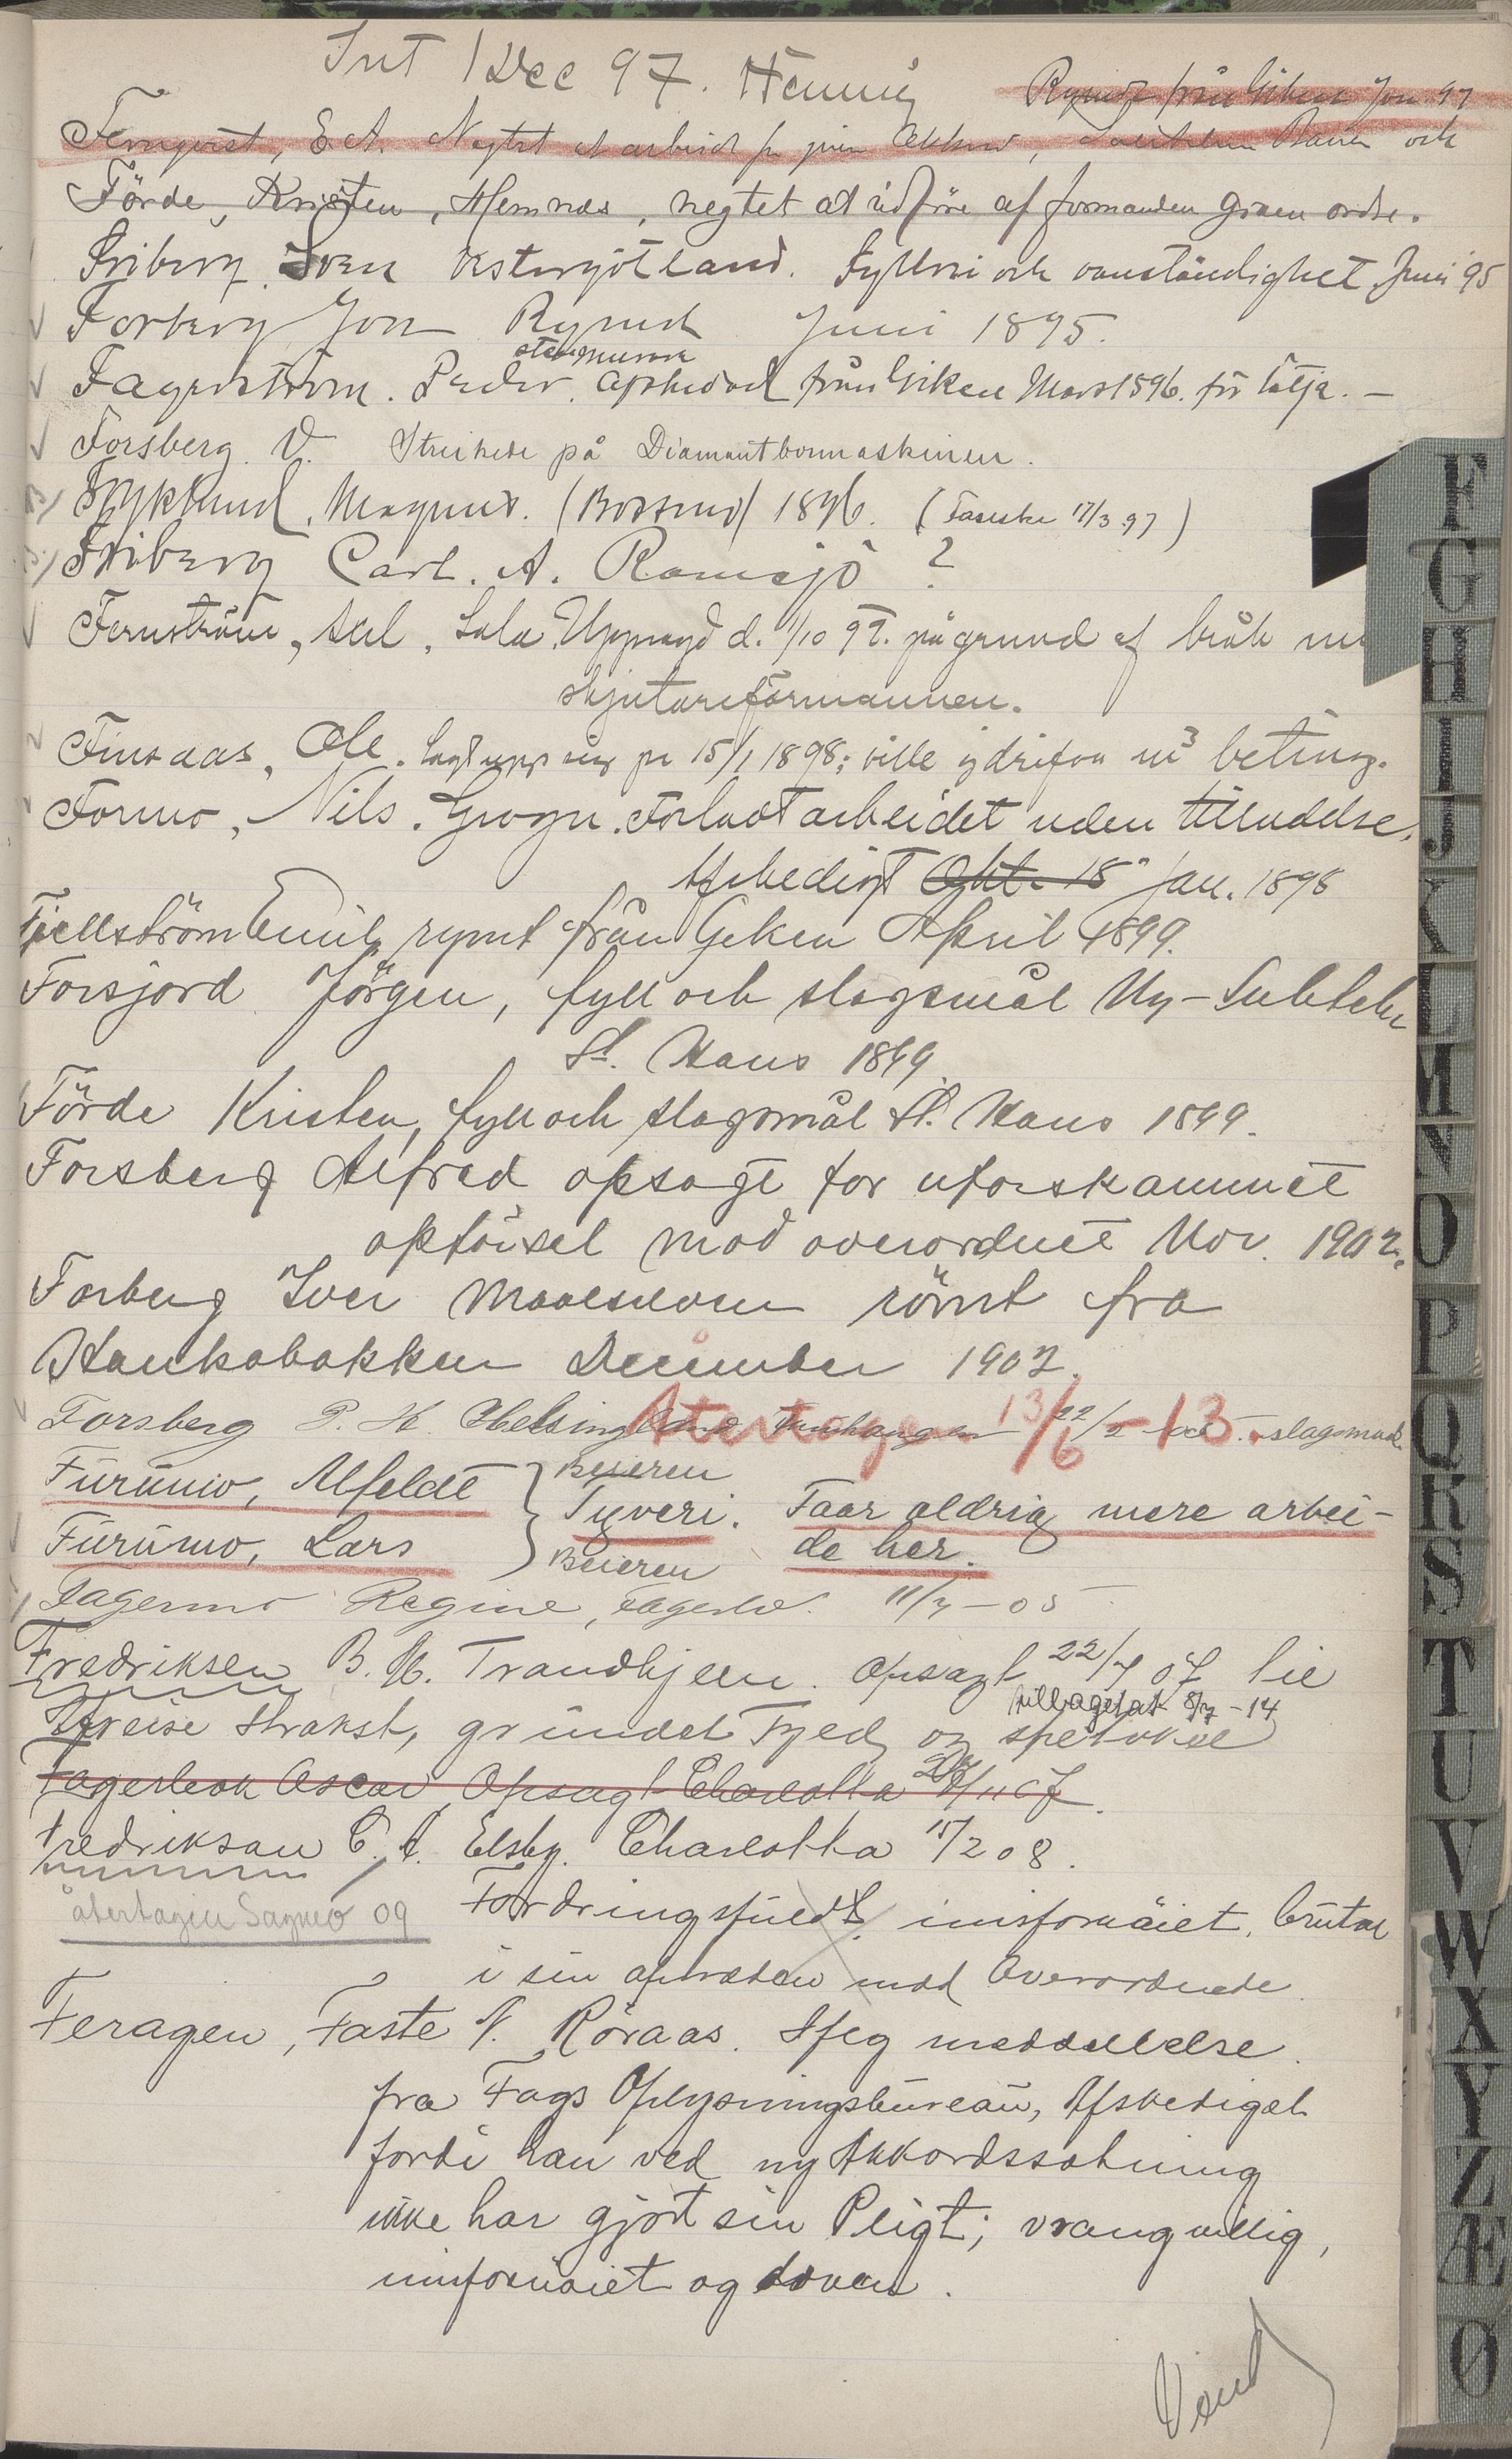 Int 1 Dec 97. Hennig
Rymdt från Giken Jan 97
Fernqvist, E. A. Negtet at arbeide
Förde, Kristen, Hemnæs, negtet at udföre af formanden given ordre.
Friberg, Sven Östergötland. Fylleri och oanständighet Juni 95
Forberg Jon Rymdt Juni 1895.
stenmurare
Fagerström. Peder. afskedad från Giken Mars 1896. för lätja. —
Forsberg. V. Streikede på Diamantbormaskinen.
Fryklund, Magnus. (Bossmo) 1896. (Fauske 17/3 97)
Friberg Carl. A. Ramsjö ?
Fernström, Axel, Sala, Uppsagd d. 1/10 97. på grund af bråk
skjutareförmannen.
Finsaas, Ole. Sagt upp sig pr 15/1 1898; ville ej drifva m³ beting.
Formo, Nils. Grogn. Forladt arbeidet uden tilladelse.
Afskediget Okt. 18 Jan. 1898
Fjellström Emil, rymt från Giken April 1899.
Forsjord Jörgen, fyll och slagsmål Ny-Sulitelm
St. Hans 1899.
Förde Kristen, fyll och slagsmål St. Hans 1899.
Forsberg Alfred opsagt for uforskammet
opförsel mod overordnet Nov. 1902.
Forberg Iver Maalselven römt fra
Hankabakken December 1902.
Forsberg P. H. Helsingland 22/2 slagsmaal.
Återtagen 13/6 - 13.
Furumo, Alfeldt } Beieren
Tyveri. Faar aldrig mere arbei-
Furumo, Lars } Beieren de her.
Fagermo Regine, Fagerli. 11/7 - 05
Fredriksen B. M. Trondhjem. Opsagt 22/7 07 til
tilbagetat 8/7 - 14
Afreise strakst, grundet Tyed og spetakel
Fagerbak Oscar Opsagt Charlotta 28/11 07.
Fredriksen C. A. Elsby. Charlotta 15/2 08.
återtagen Sagmo 09
Fordringsfuldt, misfornöiet, brutal
i sin optræden mod Overordnede.
Feragen, Faste N. Röraas. Ifølg meddelelse
fra Fags Oplysningsbureau, Afskediget
fordi han ved ny Akkordssætning
ikke har gjort sin Pligt; vrangvillig,
misfornöiet og doven.
Vend
F
G
H
I
J
K
L
M
N
O
P
Q
R
S
T
U
V
W
X
Y
Z
Æ
Ø